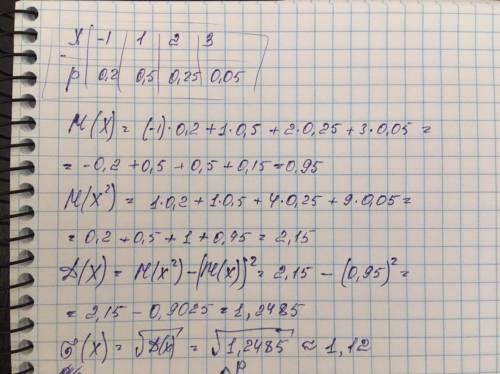 X | -1 | 1 | 2 | 3
P | 0,2 | 0,5 | 0,25 | 0,05
M(X) = (-1)·0,2+1·0,5+2·0,25+3·0,05=
= -0,2+0,5+0,5+0,15=0,95
M(X²) = 1·0,2+1·0,5+4·0,25+9·0,05=
= 0,2+0,5+1+0,45=2,15
D(X) = M(X²)-(M(X))²=2,15-(0,95)²=
= 2,15-0,9025=1,2485
σ(X) = √D(X) = √1,2485 ≈ 1,12